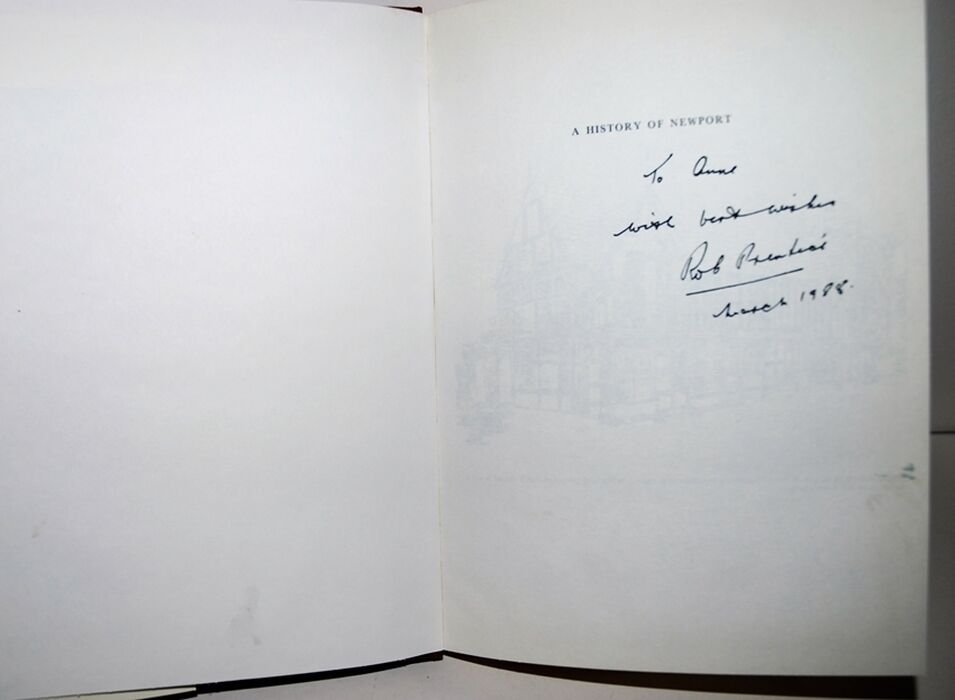 A HISTORY OF NEWPORT
To Anne
with best wishes
Rob Prentice
March 1988.